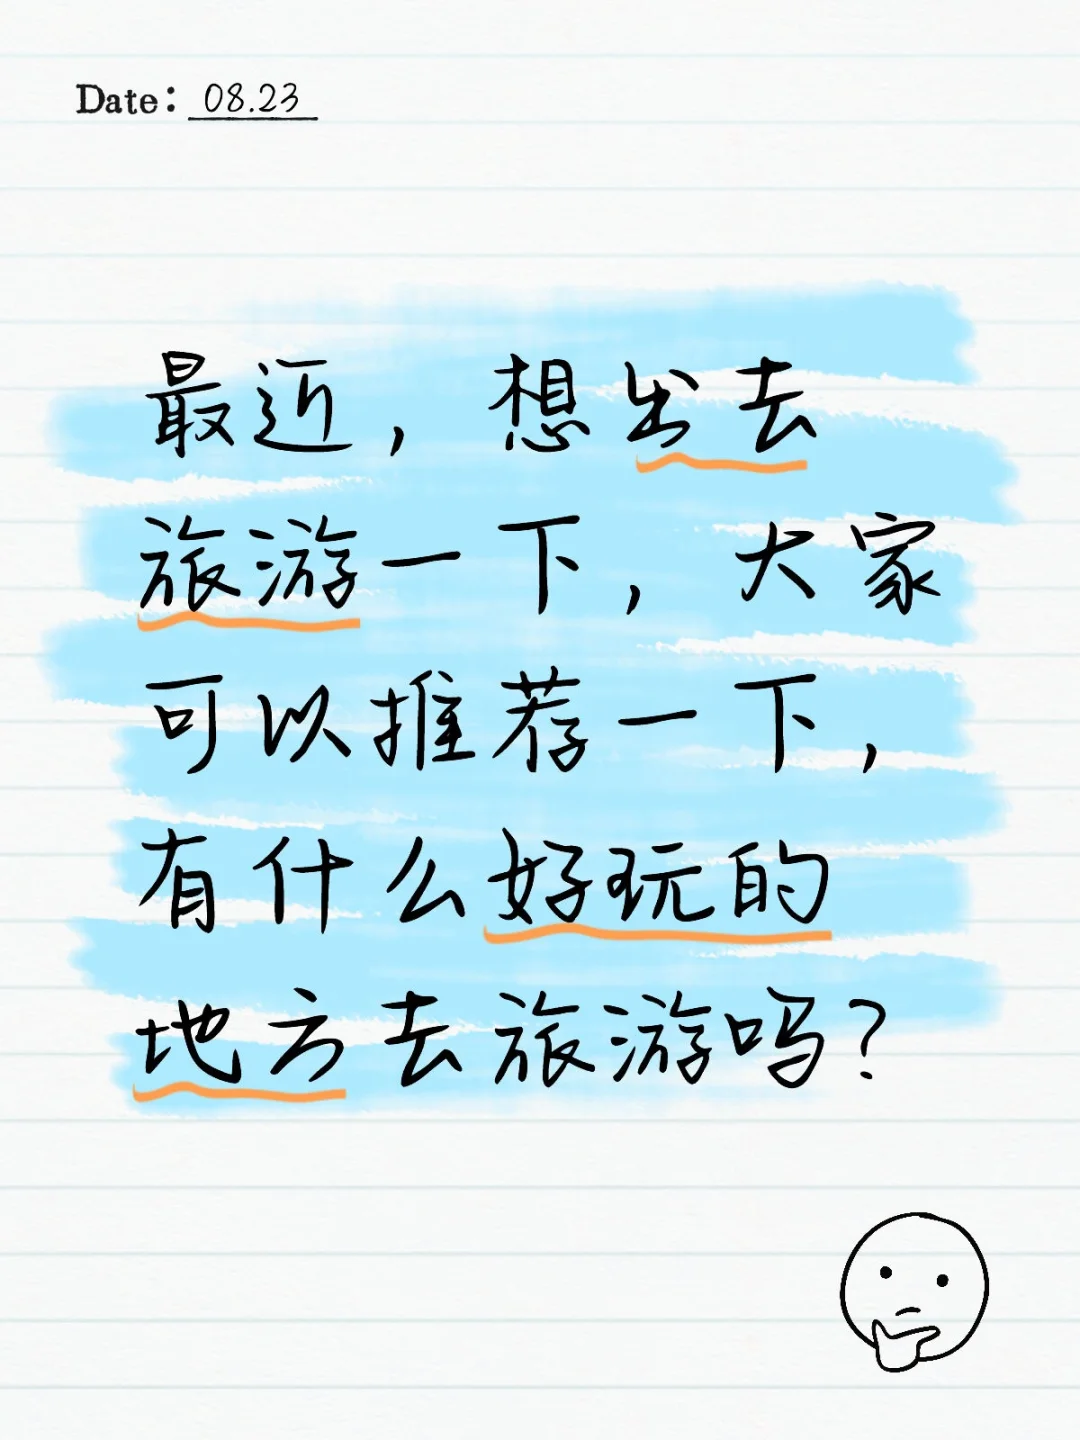 Date: 08.23
最近，想出去
旅游一下，大家
可以推荐一下，
有什么好玩的
地方去旅游吗？